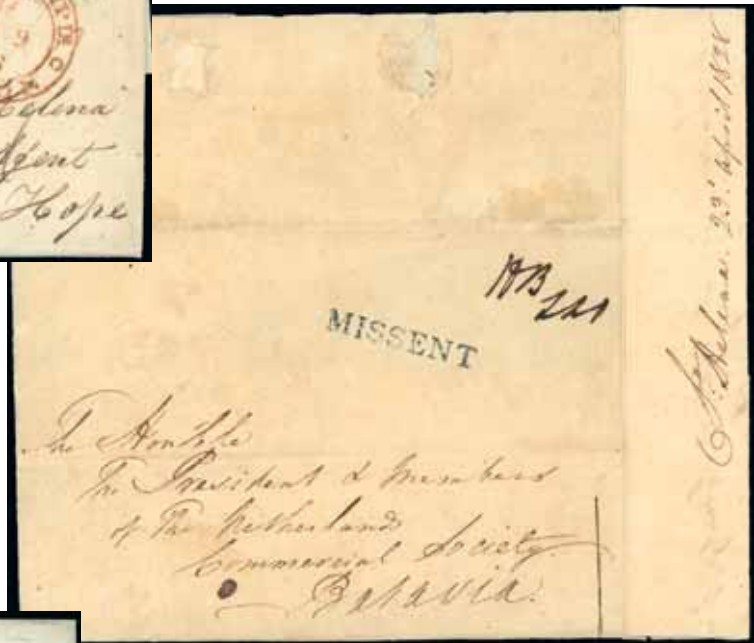 Helena
Agent
Hope
MISSENT
The Honble
The President & Members
of The Netherlands
Commercial Society
Batavia.
St. Helena. 23d. April 1828